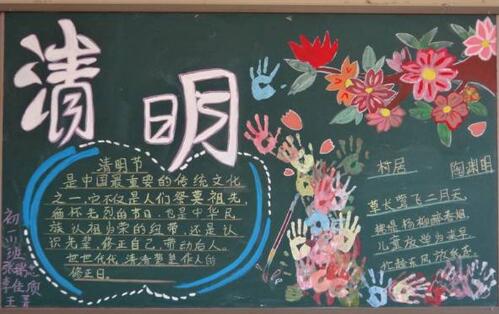 清明
清明节
是中国最重要的传统文化
之一,它不仅是人们祭奠祖先,
缅怀先烈的节日,也是中华民
族认祖归宗的纽带,还是认
识先辈,修正自己,带动后人。
世世代代,清秀
修正日。
村居 陶渊明
草长莺飞二月天
拂堤杨柳醉春烟
儿童放学归来早
忙趁东风放纸鸢
初一
班